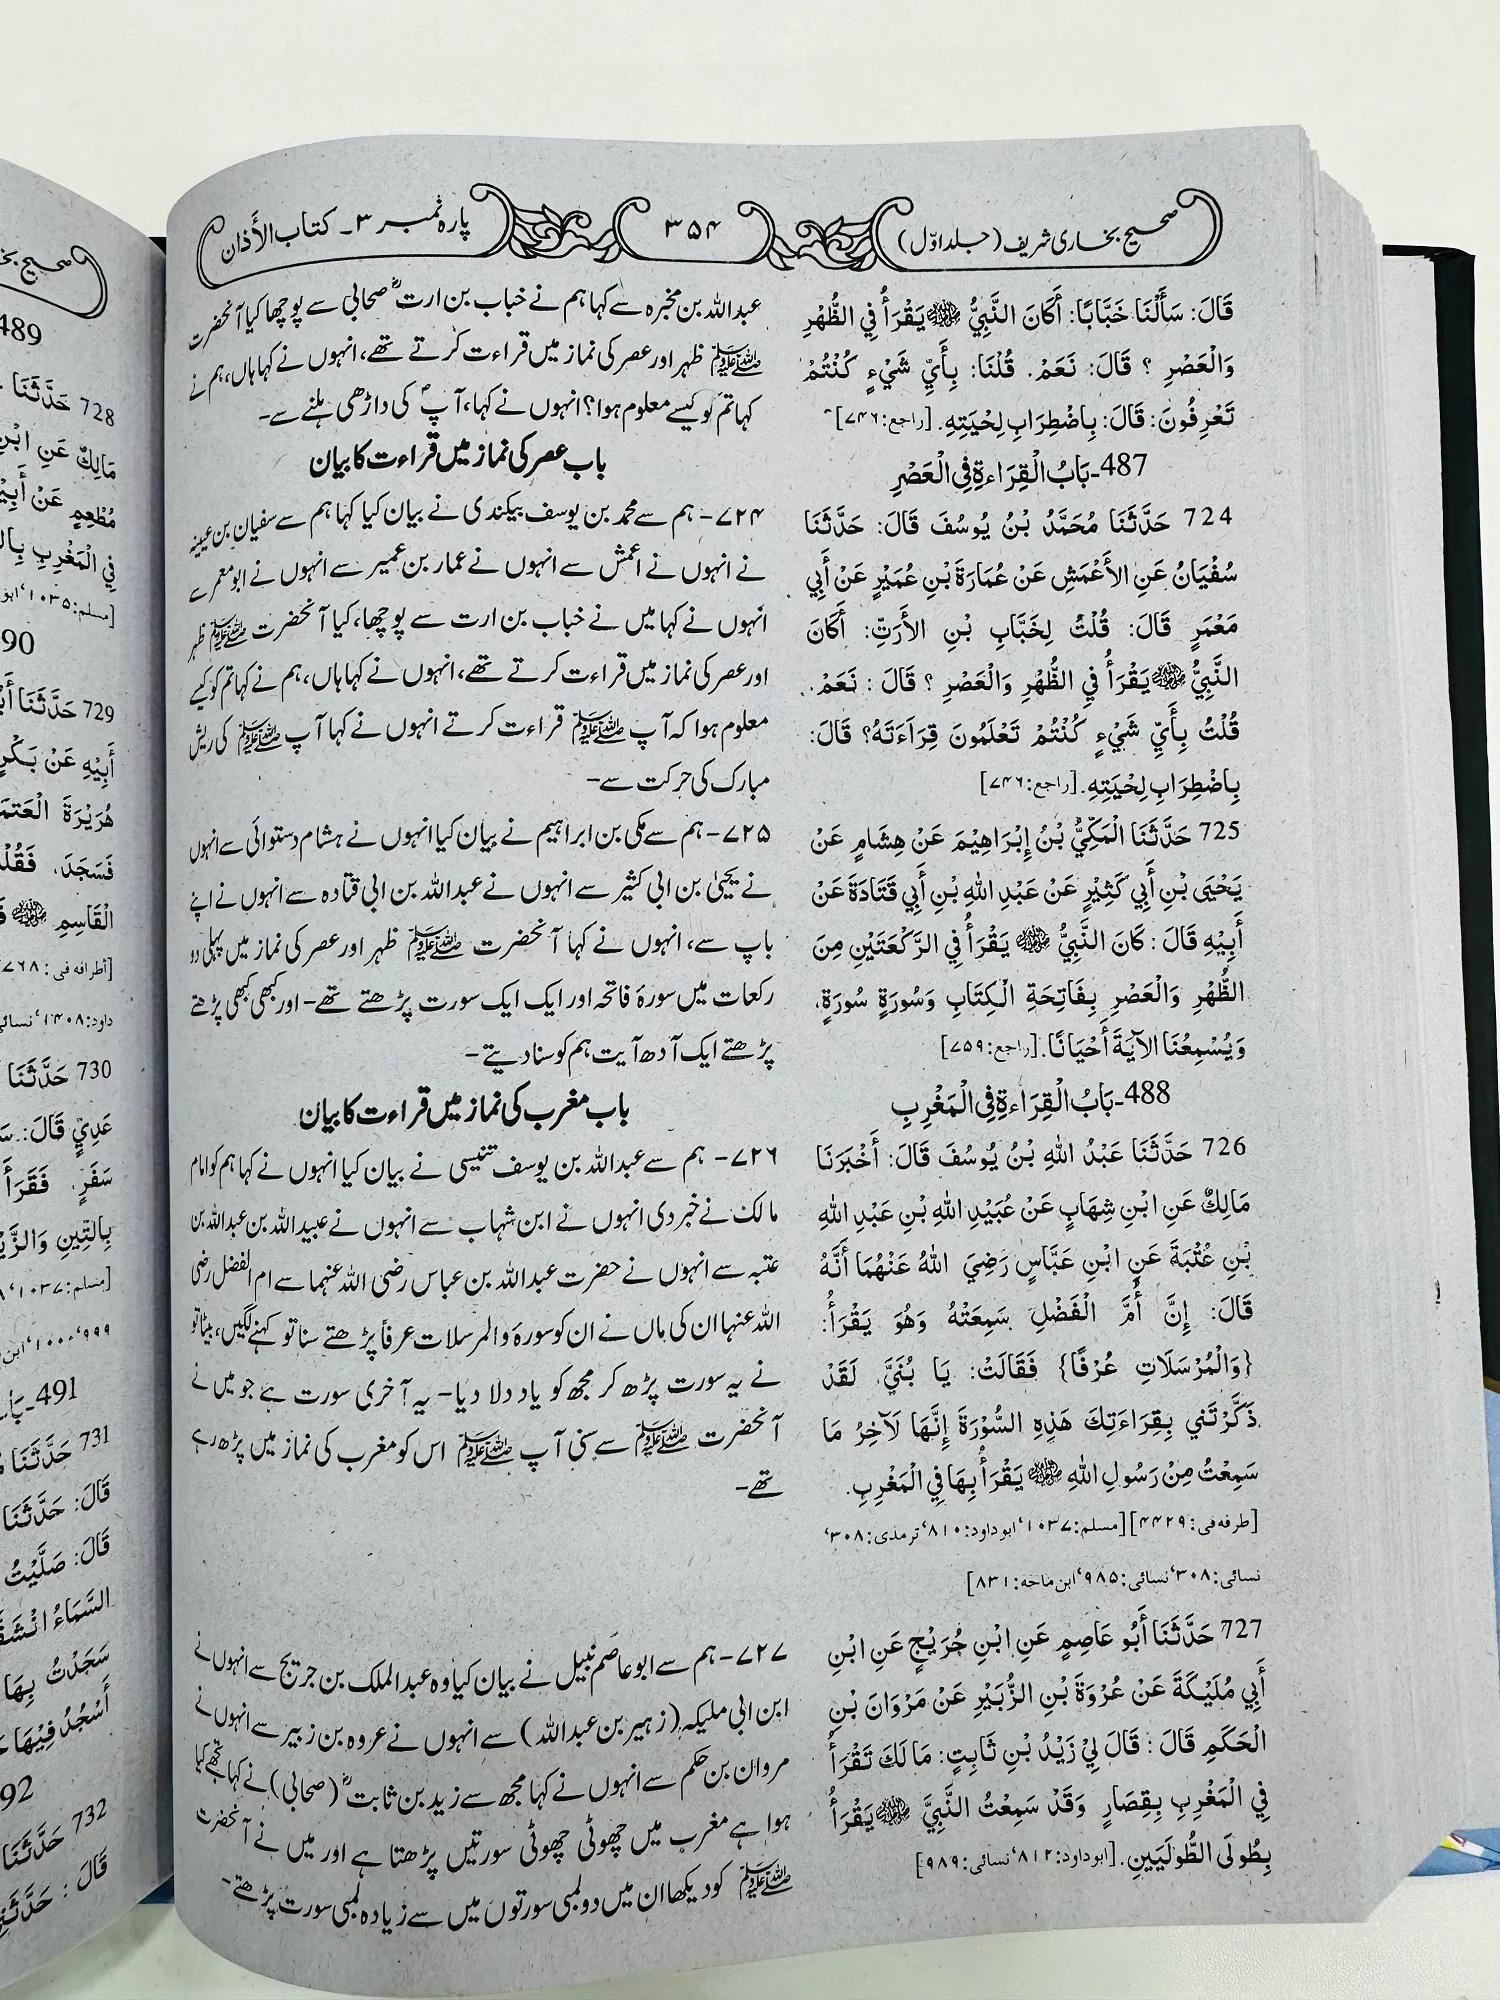 صحیح بخاری شریف (جلد اوّل)
۳۵۴
پارہ نمبر ۳۔ کتاب الأذان
قَالَ: سَأَلْنَا خَبَّابًا: أَكَانَ النَّبِيُّ ﷺ يَقْرَأُ فِي الظُّهْرِ
وَالْعَصْرِ ؟ قَالَ: نَعَمْ. قُلْنَا: بِأَيِّ شَيْءٍ كُنْتُمْ
تَعْرِفُونَ: قَالَ: بِاضْطِرَابِ لِحْيَتِهِ. [راجع: ۷۴۶]
487-بَابُ الْقِرَاءةِ فِي الْعَصْرِ
724 حَدَّثَنَا مُحَمَّدُ بْنُ يُوسُفَ قَالَ: حَدَّثَنَا
سُفْيَانُ عَنِ الأَعْمَشِ عَنْ عُمَارَةَ بْنِ عُمَيْرٍ عَنْ أَبِي
مَعْمَرٍ قَالَ: قُلْتُ لِخَبَّابِ بْنِ الأَرَتِّ: أَكَانَ
النَّبِيُّ ﷺ يَقْرَأُ فِي الظُّهْرِ وَالْعَصْرِ ؟ قَالَ : نَعَمْ.
قُلْتُ بِأَيِّ شَيْءٍ كُنْتُمْ تَعْلَمُونَ قِرَاءَتَهُ؟ قَالَ:
بِاضْطِرَابِ لِحْيَتِهِ. [راجع: ۷۴۶]
725 حَدَّثَنَا الْمَكِّيُّ بْنُ إِبْرَاهِيْمَ عَنْ هِشَامٍ عَنْ
يَحْيَى بْنِ أَبِي كَثِيْرٍ عَنْ عَبْدِ اللهِ بْنِ أَبِي قَتَادَةَ عَنْ
أَبِيْهِ قَالَ : كَانَ النَّبِيُّ ﷺ يَقْرَأُ فِي الرَّكْعَتَيْنِ مِنَ
الظُّهْرِ وَالْعَصْرِ بِفَاتِحَةِ الْكِتَابِ وَسُورَةٍ سُورَةٍ،
وَيُسْمِعُنَا الآيَةَ أَحْيَانًا. [راجع: ۷۵۹]
488-بَابُ الْقِرَاءةِ فِي الْمَغْرِبِ
726 حَدَّثَنَا عَبْدُ اللهِ بْنُ يُوسُفَ قَالَ: أَخْبَرَنَا
مَالِكٌ عَنِ ابْنِ شِهَابٍ عَنْ عُبَيْدِ اللهِ بْنِ عَبْدِ اللهِ
بْنِ عُتْبَةَ عَنِ ابْنِ عَبَّاسٍ رَضِيَ اللهُ عَنْهُمَا أَنَّهُ
قَالَ: إِنَّ أُمَّ الْفَضْلِ سَمِعَتْهُ وَهُوَ يَقْرَأُ:
{وَالْمُرْسَلَاتِ عُرْفًا} فَقَالَتْ: يَا بُنَيَّ، لَقَدْ
ذَكَّرْتَنِي بِقِرَاءَتِكَ هَذِهِ السُّوْرَةَ إِنَّهَا لَآخِرُ مَا
سَمِعْتُ مِنْ رَسُولِ اللهِ ﷺ يَقْرَأُ بِهَا فِي الْمَغْرِبِ.
[طرفه فی: ۴۴۲۹] [مسلم: ۱۰۳۷، ابو داود: ۸۱۰، ترمذی: ۳۰۸،
نسائی: ۳۰۸، نسائی: ۹۸۵، ابن ماجه: ۸۳۱]
727 حَدَّثَنَا أَبُو عَاصِمٍ عَنِ ابْنِ جُرَيْجٍ عَنِ ابْنِ
أَبِي مُلَيْكَةَ عَنْ عُرْوَةَ بْنِ الزُّبَيْرِ عَنْ مَرْوَانَ بْنِ
الْحَكَمِ قَالَ : قَالَ لِيْ زَيْدُ بْنِ ثَابِتٍ: مَا لَكَ تَقْرَأُ
فِي الْمَغْرِبِ بِقِصَارٍ وَقَدْ سَمِعْتُ النَّبِيَّ ﷺ يَقْرَأُ
بِطُولَى الطُّولَيَيْنِ. [ابو داود: ۸۱۲، نسائی: ۹۸۹]
عبداللہ بن مخبرہ سے کہا ہم نے خباب بن ارت ؓ صحابی سے پوچھا کیا آنحضرت
ﷺ ظہر اور عصر کی نماز میں قراءت کرتے تھے، انہوں نے کہا ہاں، ہم نے
کہا تم کو کیسے معلوم ہوا؟ انہوں نے کہا، آپ ؐ کی داڑھی ہلنے سے۔
باب عصر کی نماز میں قراءت کا بیان
۷۲۴- ہم سے محمد بن یوسف بیکندی نے بیان کیا کہا ہم سے سفیان بن عیینہ
نے انہوں نے اعمش سے انہوں نے عمار بن عمیر سے انہوں نے ابو معمر سے
انہوں نے کہا میں نے خباب بن ارت سے پوچھا، کیا آنحضرت ﷺ ظہر
اور عصر کی نماز میں قراءت کرتے تھے، انہوں نے کہا ہاں، ہم نے کہا تم کو کیسے
معلوم ہوا کہ آپ ﷺ قراءت کرتے انہوں نے کہا آپ ﷺ کی ریش
مبارک کی حرکت سے-
۷۲۵- ہم سے مکی بن ابراہیم نے بیان کیا انہوں نے ہشام دستوائی سے انہوں
نے یحییٰ بن ابی کثیر سے انہوں نے عبداللہ بن ابی قتادہ سے انہوں نے اپنے
باپ سے، انہوں نے کہا آنحضرت ﷺ ظہر اور عصر کی نماز میں پہلی دو
رکعات میں سورۂ فاتحہ اور ایک ایک سورت پڑھتے تھے- اور کبھی کبھی پڑھتے
پڑھتے ایک آدھ آیت ہم کو سنا دیتے-
باب مغرب کی نماز میں قراءت کا بیان
۷۲۶- ہم سے عبداللہ بن یوسف تنیسی نے بیان کیا انہوں نے کہا ہم کو امام
مالک نے خبر دی انہوں نے ابن شہاب سے انہوں نے عبیداللہ بن عبداللہ بن
عتبہ سے انہوں نے حضرت عبداللہ بن عباس رضی اللہ عنہما سے ام الفضل رضی
اللہ عنہا ان کی ماں نے ان کو سورۂ والمرسلات عرفا پڑھتے سنا تو کہنے لگیں، بیٹا تو
نے یہ سورت پڑھ کر مجھ کو یاد دلا دیا- یہ آخری سورت ہے جو میں نے
آنحضرت ﷺ سے سنی آپ ﷺ اس کو مغرب کی نماز میں پڑھ رہے
تھے-
۷۲۷- ہم سے ابو عاصم نبیل نے بیان کیا وہ عبدالملک بن جریج سے انہوں نے
ابن ابی ملیکہ (زہیر بن عبداللہ) سے انہوں نے عروہ بن زبیر سے انہوں نے
مروان بن حکم سے انہوں نے کہا مجھ سے زید بن ثابت ؓ (صحابی) نے کہا تجھے کیا
ہوا ہے مغرب میں چھوٹی چھوٹی سورتیں پڑھتا ہے اور میں نے آنحضرت
ﷺ کو دیکھا ان میں دو لمبی سورتوں میں سے زیادہ لمبی سورت پڑھتے-
489
728 حَدَّثَنَا
مَالِكٌ عَنِ ابْنِ
مُطْعِمٍ عَنْ أَبِيْ
فِي الْمَغْرِبِ بِال
[مسلم: ۱۰۳۵، ابو
90
729 حَدَّثَنَا أَبُ
أَبِيْهِ عَنْ بَكْرٍ
هُرَيْرَةَ الْعَتَمَ
فَسَجَدَ، فَقُلْ
الْقَاسِمِ ﷺ
[أطرافه فی: ۷۶۸
داود: ۱۴۰۸، نسائی
730 حَدَّثَنَا
عَدِيٍّ قَالَ: سَ
سَفَرٍ، فَقَرَأَ
بِالتِّينِ وَالزَّيْ
[مسلم: ۱۰۳۷
491-بَاب
731 حَدَّثَنَا
قَالَ: حَدَّثَنَا
قَالَ: صَلَّيْتُ
السَّمَاءُ انْشَقَّ
سَجَدْتُ بِهَا
أَسْجُدُ فِيْهَا
92
732 حَدَّثَنَا
قَالَ : حَدَّثَنِ